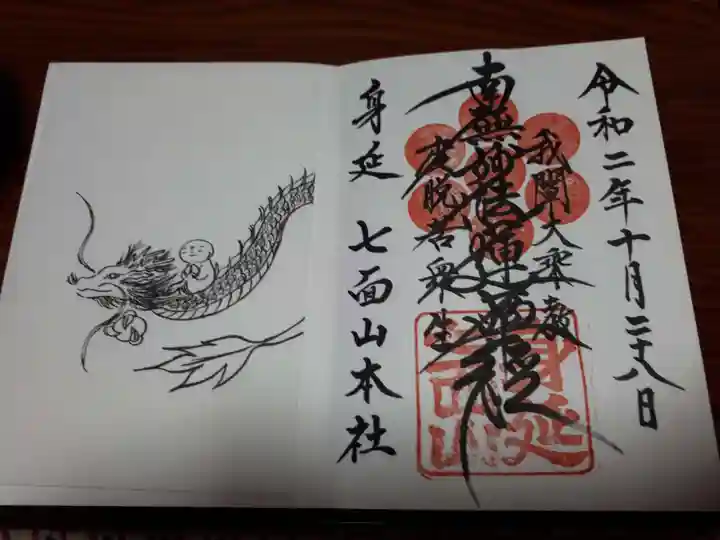 令和二年十月二十八日
我聞大乗教
南無妙法蓮華経
度脱苦衆生
身延 七面山本社
身延
七面山